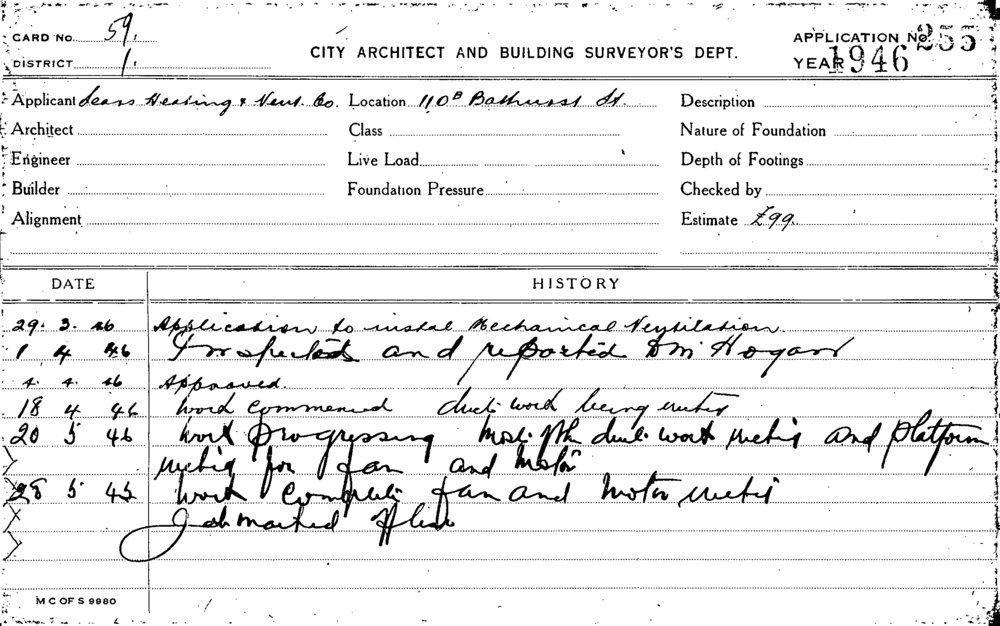 CARD No. 59.
DISTRICT 1.
CITY ARCHITECT AND BUILDING SURVEYOR'S DEPT.
APPLICATION No. 255
YEAR 1946
Applicant Sears Heating & Vent. Co. Location 110B Bathurst St. Description
Architect Class Nature of Foundation
Engineer Live Load Depth of Footings
Builder Foundation Pressure Checked by
Alignment Estimate £99.
DATE HISTORY
29. 3. 46 Application to instal Mechanical Ventilation.
1 4 46 Inspected and reported D M Hogan
4. 4. 46 Approved.
18 4 46 Work commenced duct work being erected
20 5 46 Work progressing most of the duct work erected and platform
erected for fan and motor
28 5 46 Work complete fan and motor erected
Job marked
M C OF S 9980